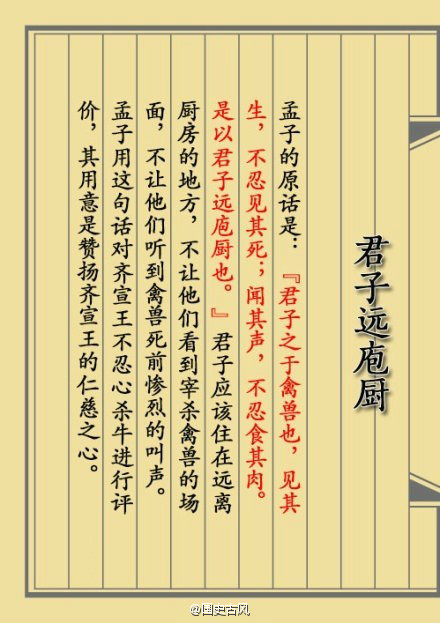 君子远庖厨
孟子的原话是：『君子之于禽兽也，见其
生，不忍见其死；闻其声，不忍食其肉。
是以君子远庖厨也。』君子应该住在远离
厨房的地方，不让他们看到宰杀禽兽的场
面，不让他们听到禽兽死前惨烈的叫声。
孟子用这句话对齐宣王不忍心杀牛进行评
价，其用意是赞扬齐宣王的仁慈之心。
@国史古风